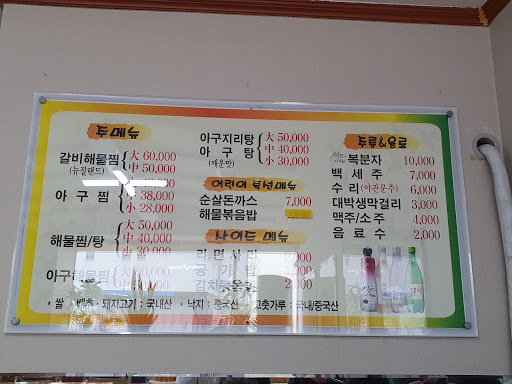 주메뉴
갈비해물찜 大 60,000
(뉴질랜드) 中 50,000
아구찜 中 38,000
小 28,000
해물찜/탕 大 50,000
中 40,000
小 30,000
아구해물
아구지리탕 大 50,000
아구탕 中 40,000
(매운맛) 小 30,000
어린이 복선메뉴
순살돈까스 7,000
해물볶음밥
사이드 메뉴
라면사리
공기밥
주류&음료
복분자 10,000
백세주 7,000
수리(아관문주) 6,000
대박생막걸리 3,000
맥주/소주 4,000
음료수 2,000
• 쌀 • 배추 • 돼지고기 : 국내산 • 낙지 : 중국산 • 고춧가루 : 국내/중국산